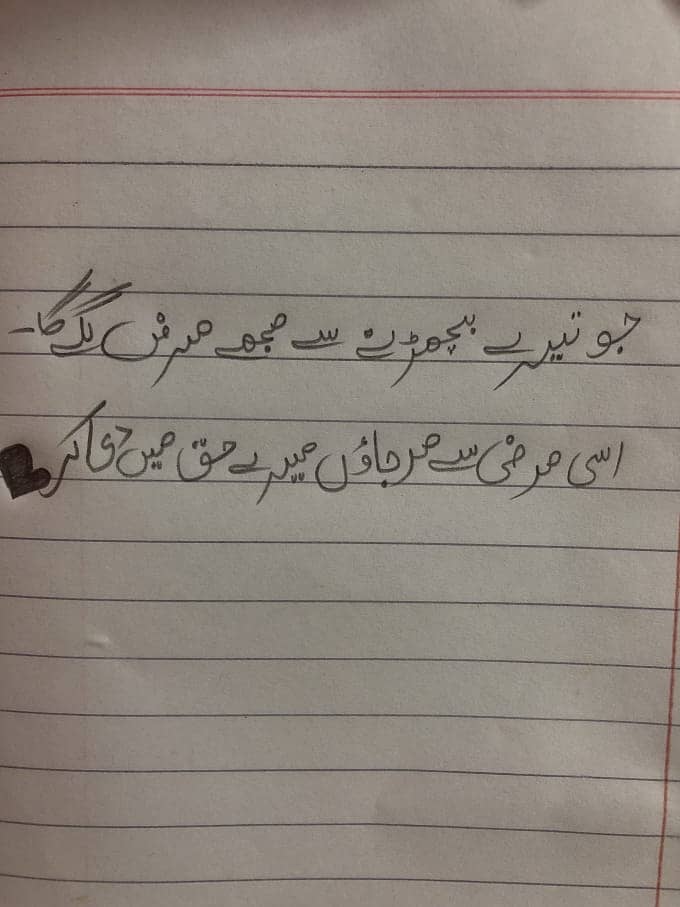 جو تیرے بچھڑنے سے مجھے مرض لگے گا۔
اسی مرضی سے مر جاؤں میرے حق میں دعا کر